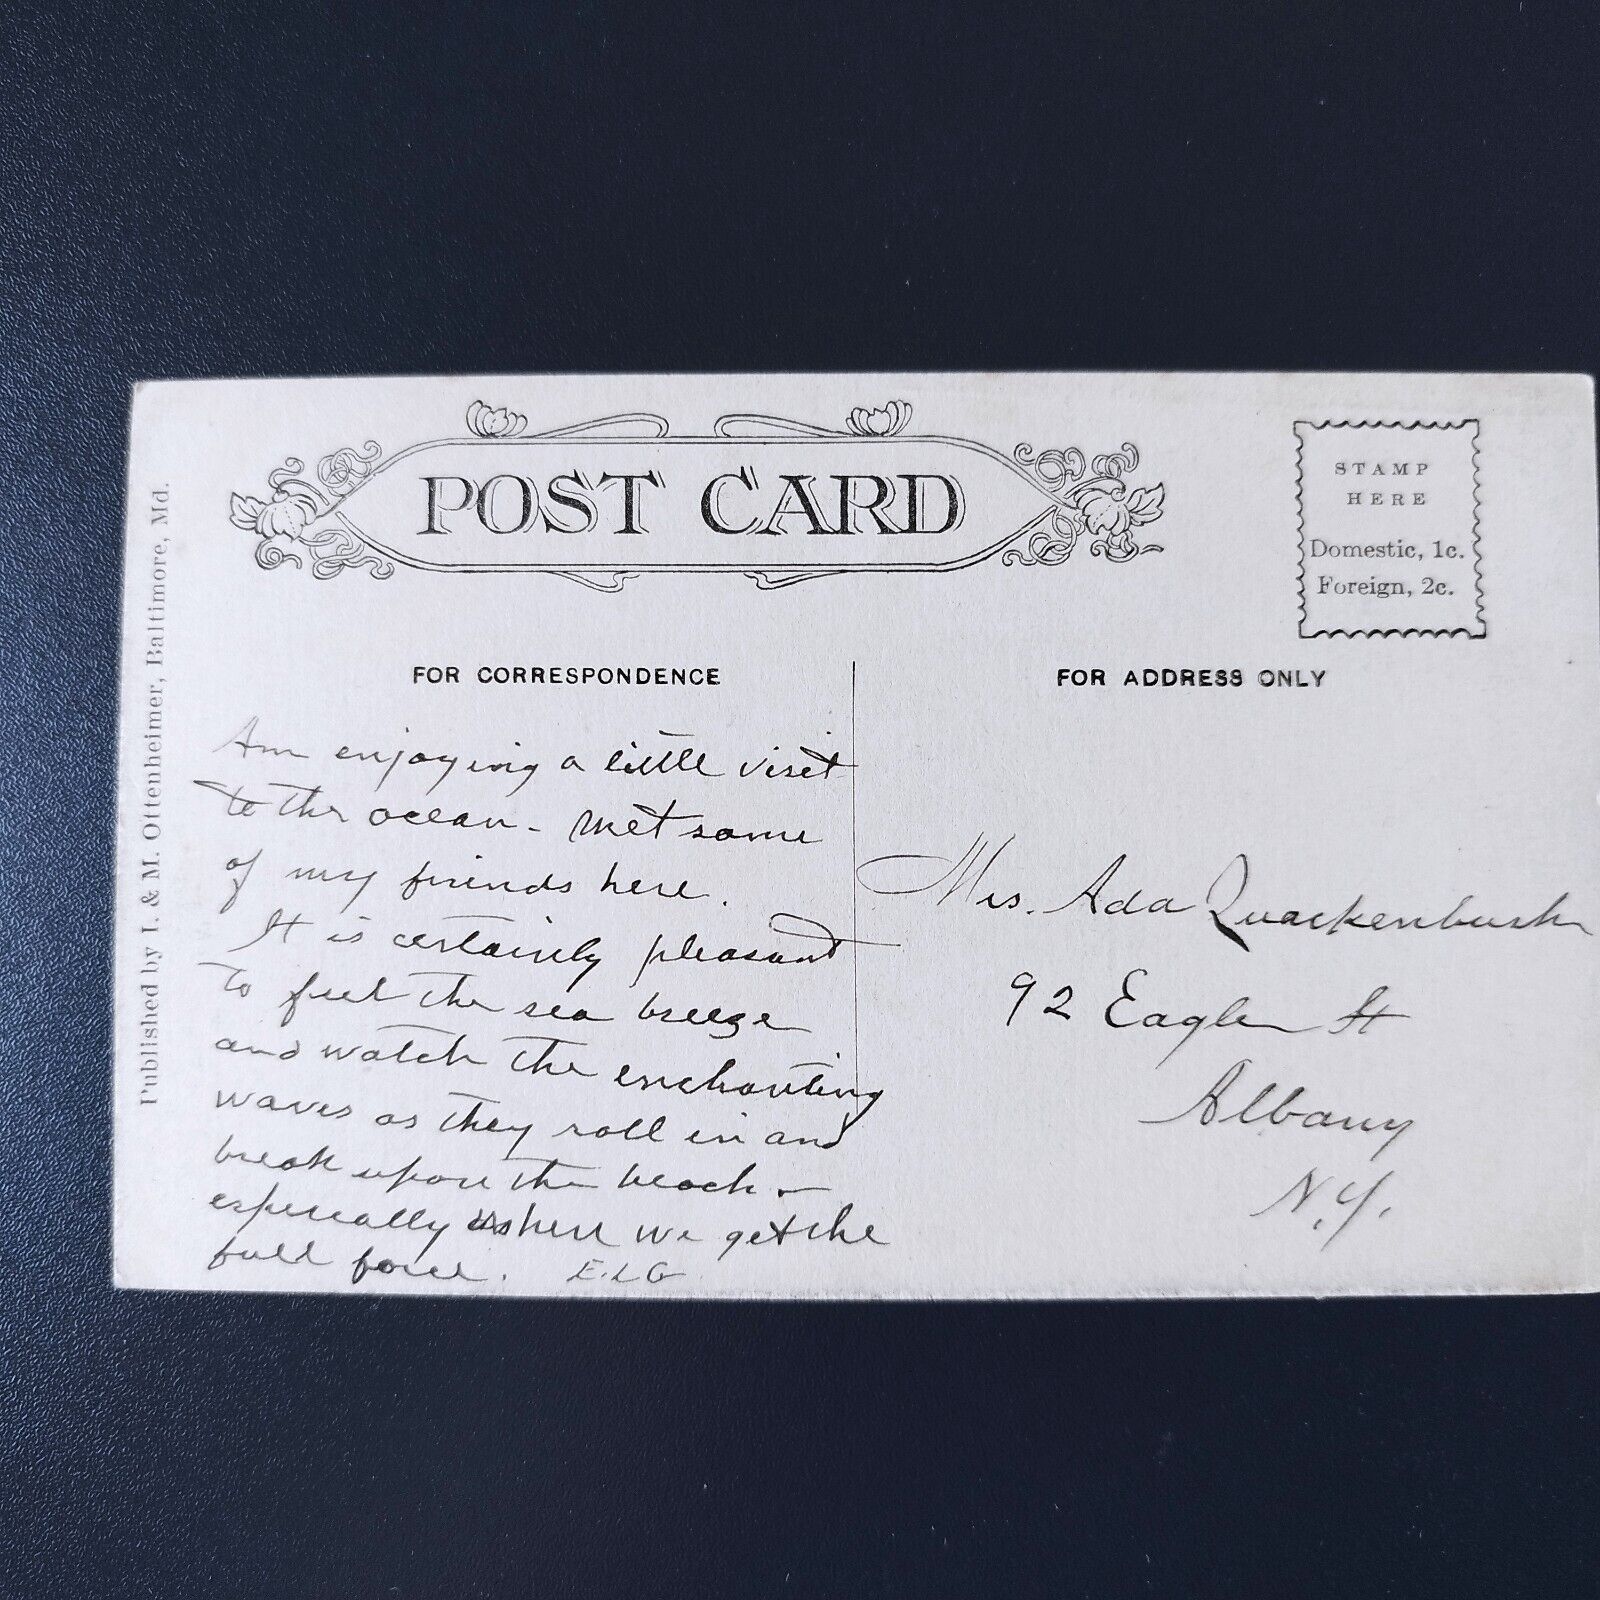 POST CARD
STAMP
HERE
Domestic, 1c.
Foreign, 2c.
Published by I. & M. Ottenheimer, Baltimore, Md.
FOR CORRESPONDENCE
Am enjoying a little visit
to the ocean - met some
of my friends here.
It is certainly pleasant
to feel the sea breeze
and watch the enchanting
waves as they roll in and
break upon the beach -
especially where we get the
full force. E.L.G
FOR ADDRESS ONLY
Mrs. Ada Quackenbush
92 Eagle St
Albany
N.Y.